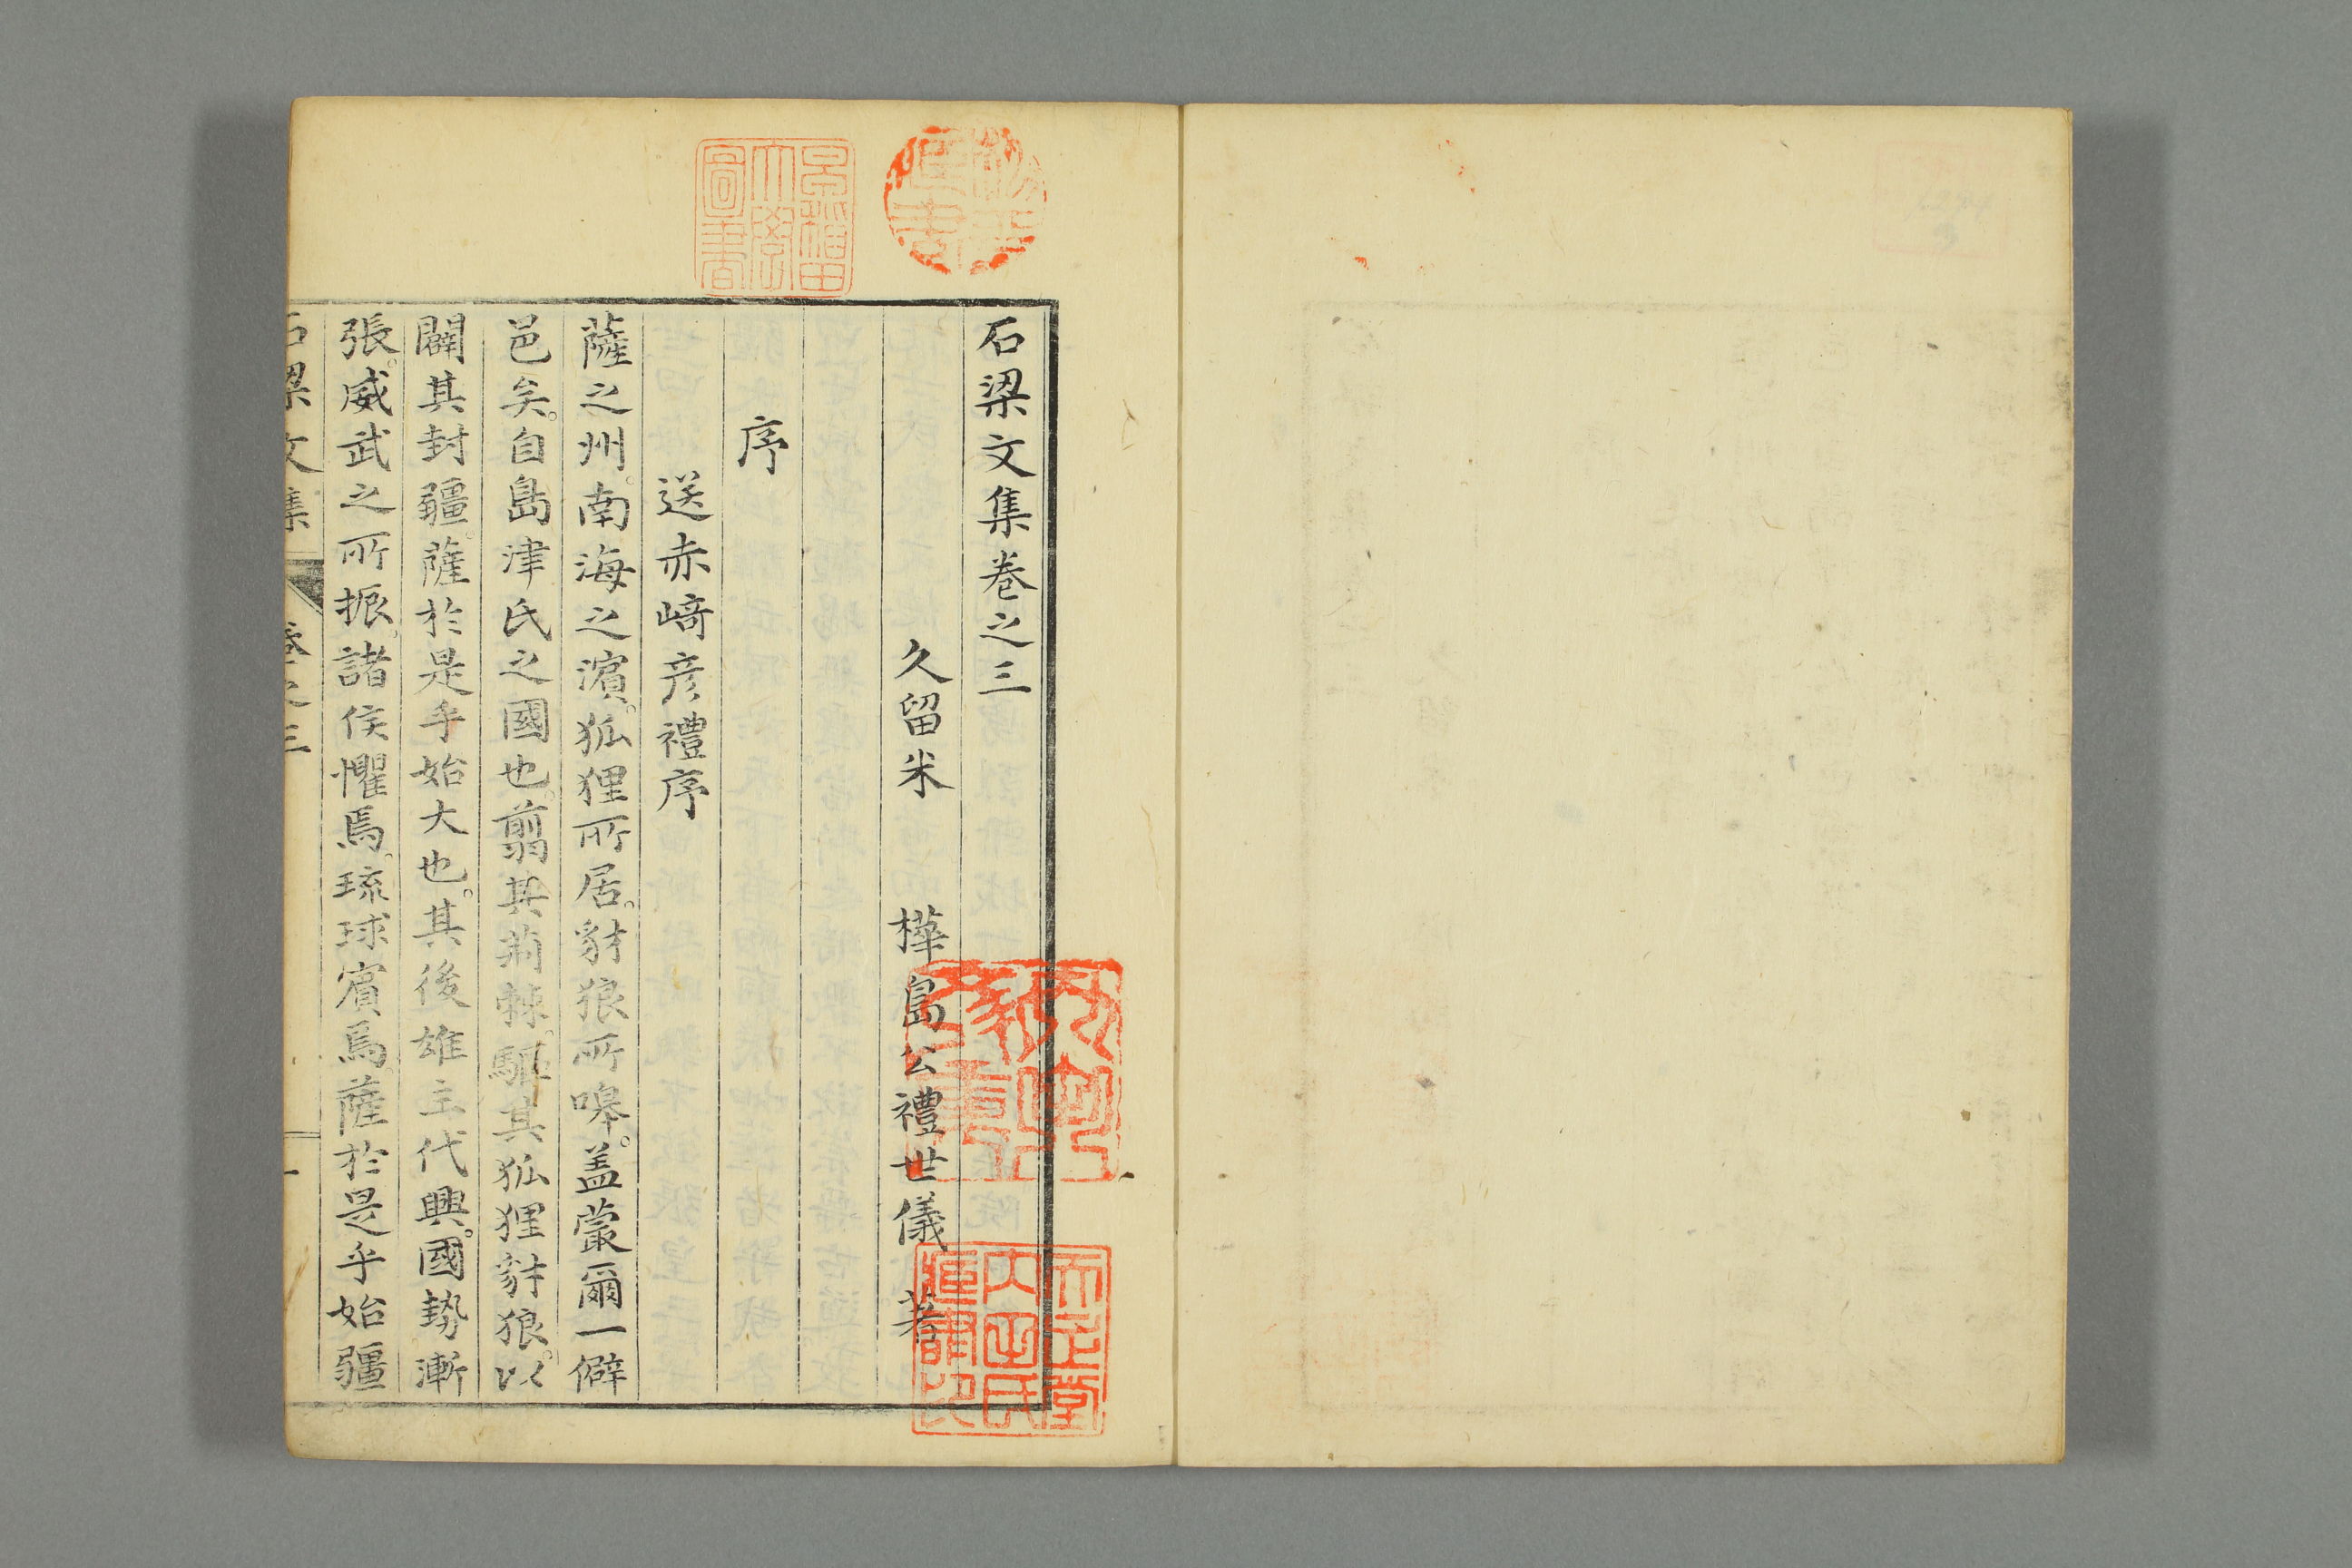 石梁文集卷之三
久留米　樺島公禮世儀　著
序
送赤﨑彦禮序
薩之州。南海之濵。狐狸所居。豺狼所嘷。盖蕞爾一僻
邑矣。自島津氏之國也。翦其荊棘。驅其狐狸豺狼。以
闢其封疆。薩於是乎始大也。其後雄主代興。國勢漸
張。威武之所振。諸侯懼焉。琉球賓焉。薩於是乎始疆
石梁文集　卷之三　一
早稲田大學圖書